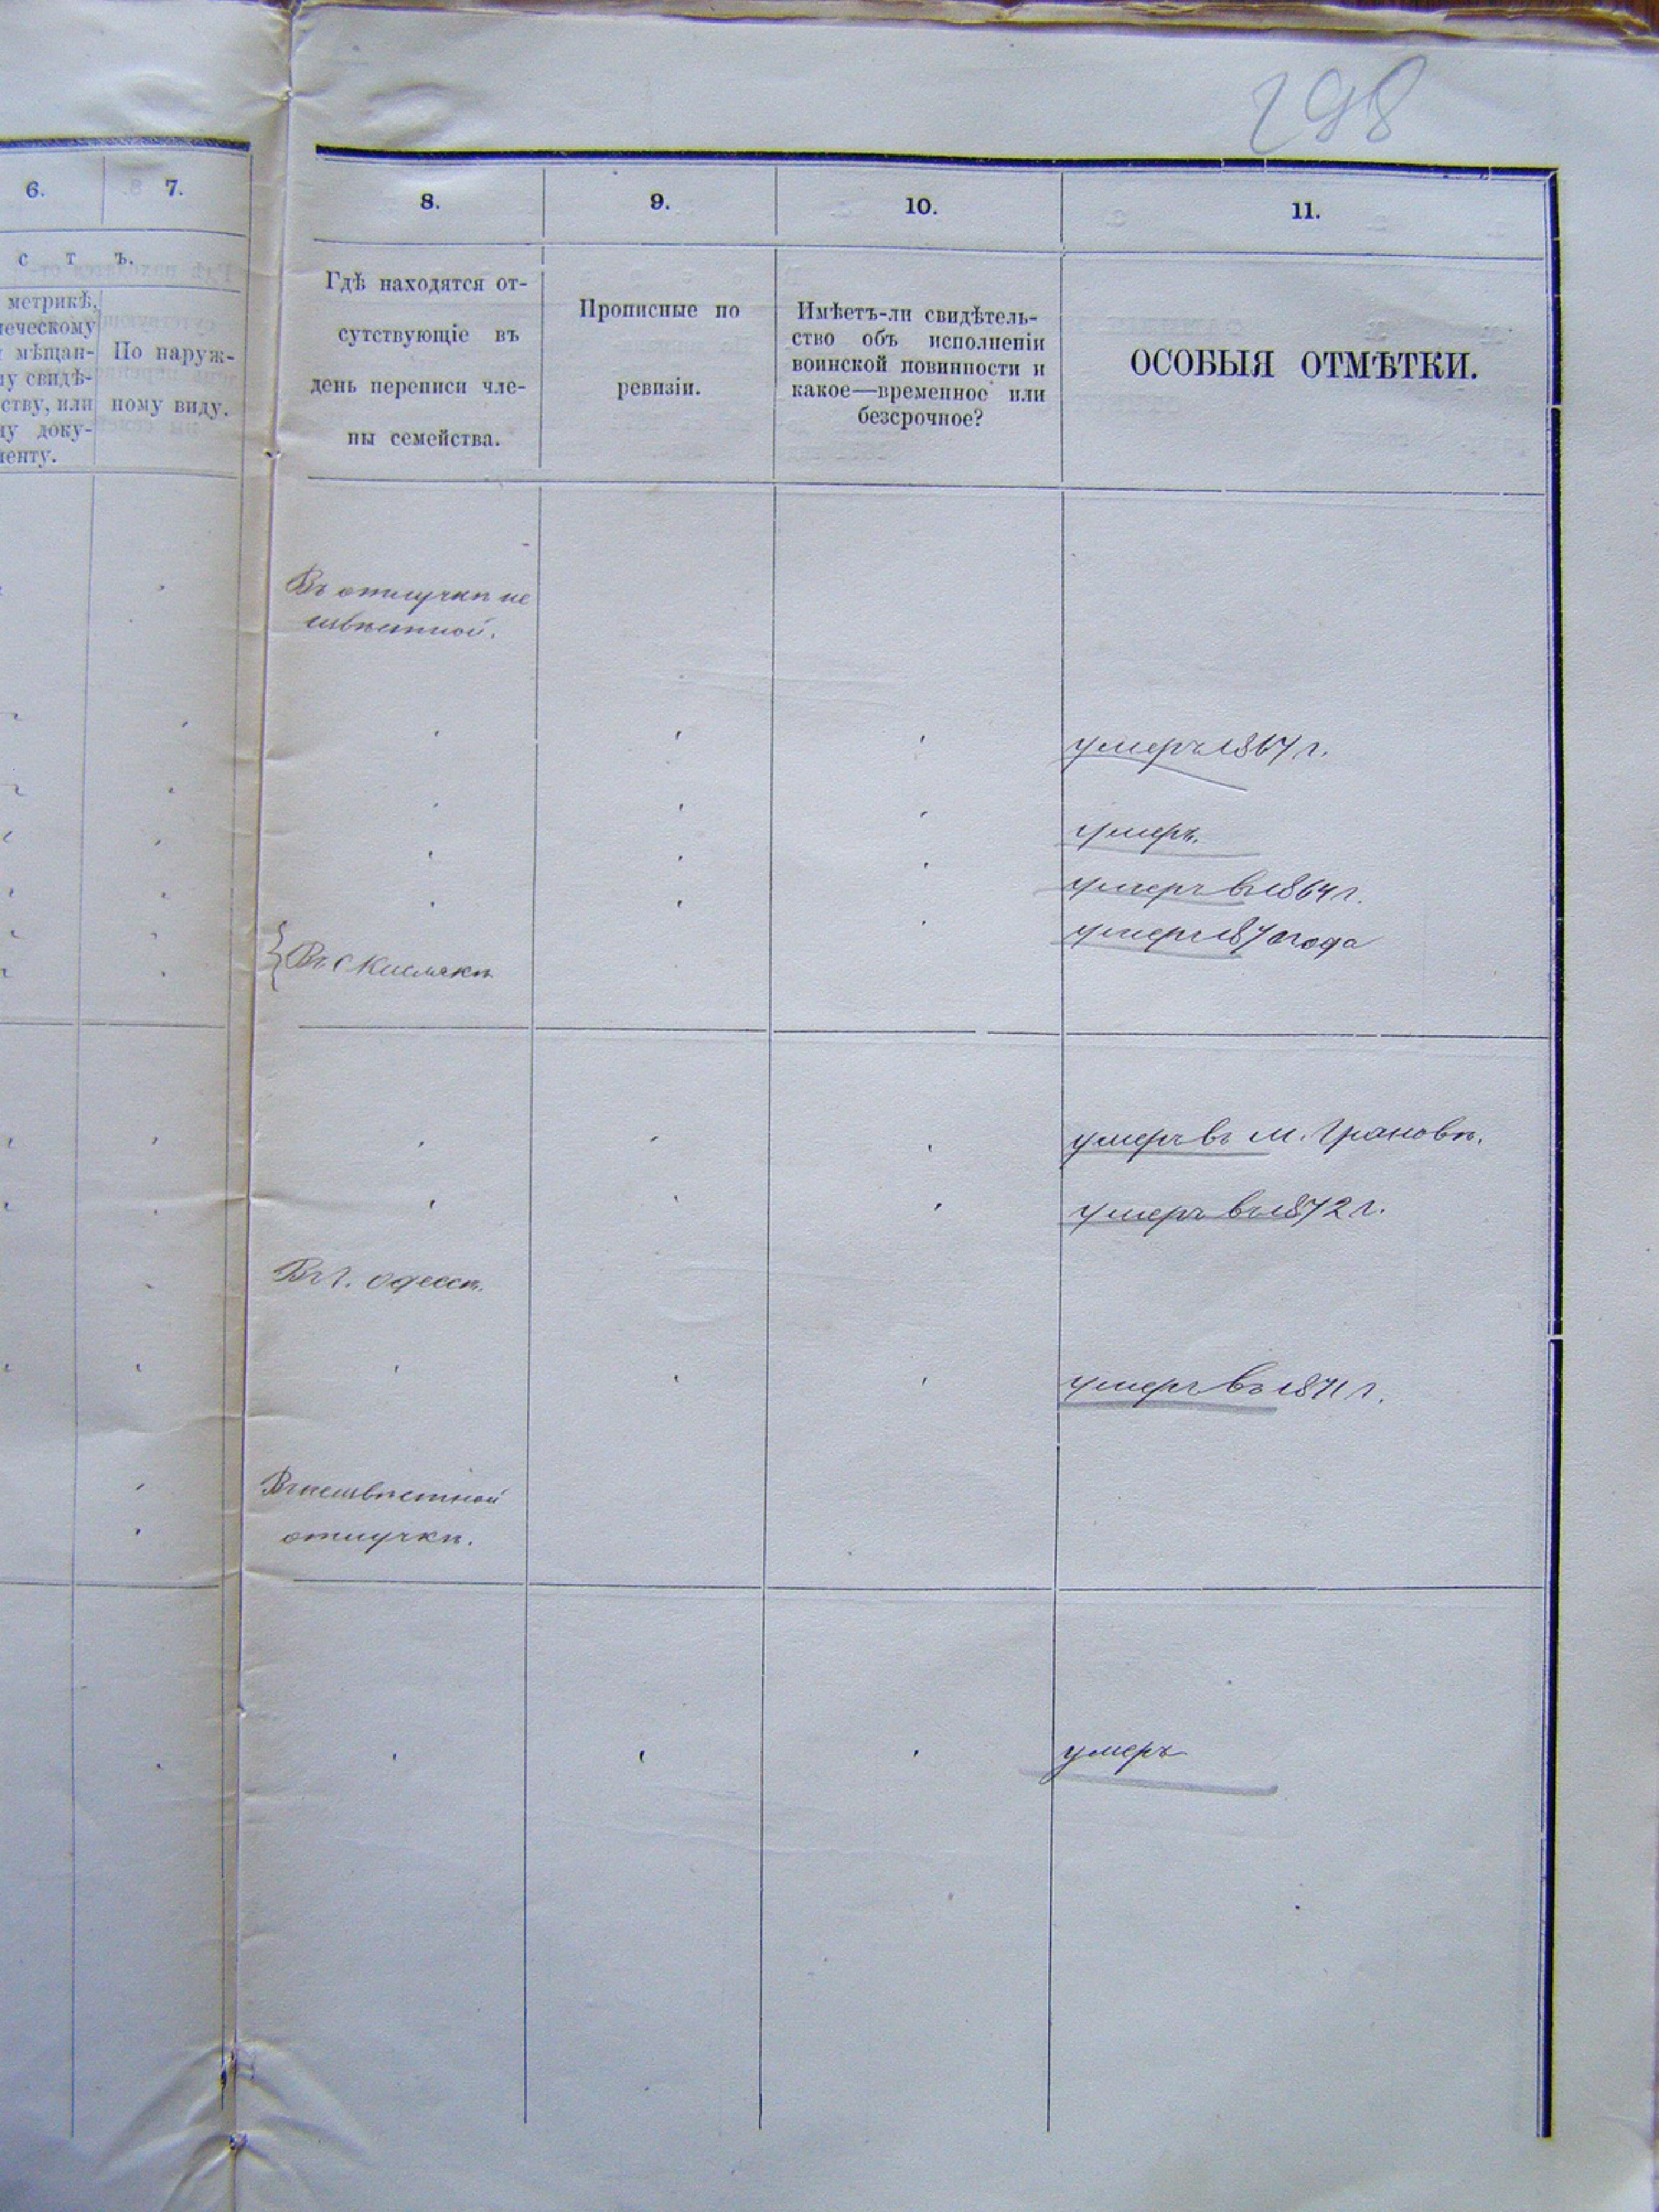 298
6. 7. 8. 9. 10. 11.
с т ъ.
метрикѣ,
мѣщан-
свидѣ-
ству, или
доку-
По наруж-
ному виду.
Гдѣ находятся от-
сутствующіе въ
день переписи чле-
ны семейства.
Прописные по
ревизіи.
Имѣетъ-ли свидѣтель-
ство объ исполненіи
воинской повинности и
какое—временное или
безсрочное?
ОСОБЫЯ ОТМѢТКИ.
Въ отлучкѣ не
извѣстной.
умеръ 1867 г.
умеръ.
умеръ въ 1864 г.
умеръ года
Въ с Кислякѣ
умеръ въ м. Грановѣ.
умеръ въ 1872 г.
Въ г. Одессѣ.
умеръ въ 1871 г.
Въ неизвѣстной
отлучкѣ.
умеръ